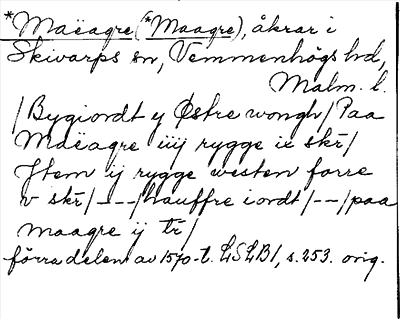 *Maëagre (*Maagre), åkrar i
Skivarps sn, Vemmenhögs hd,
Malm. l.
/Bygiordt y Østre wongh/Paa
Maëagre iiij rygge ix skr/
Jtem ij rygge westen forre
v skr/---/hauffre iordt/--/paa
maagre ij tr/
förra delen av 1570-t. LSLB1, s. 253. orig.